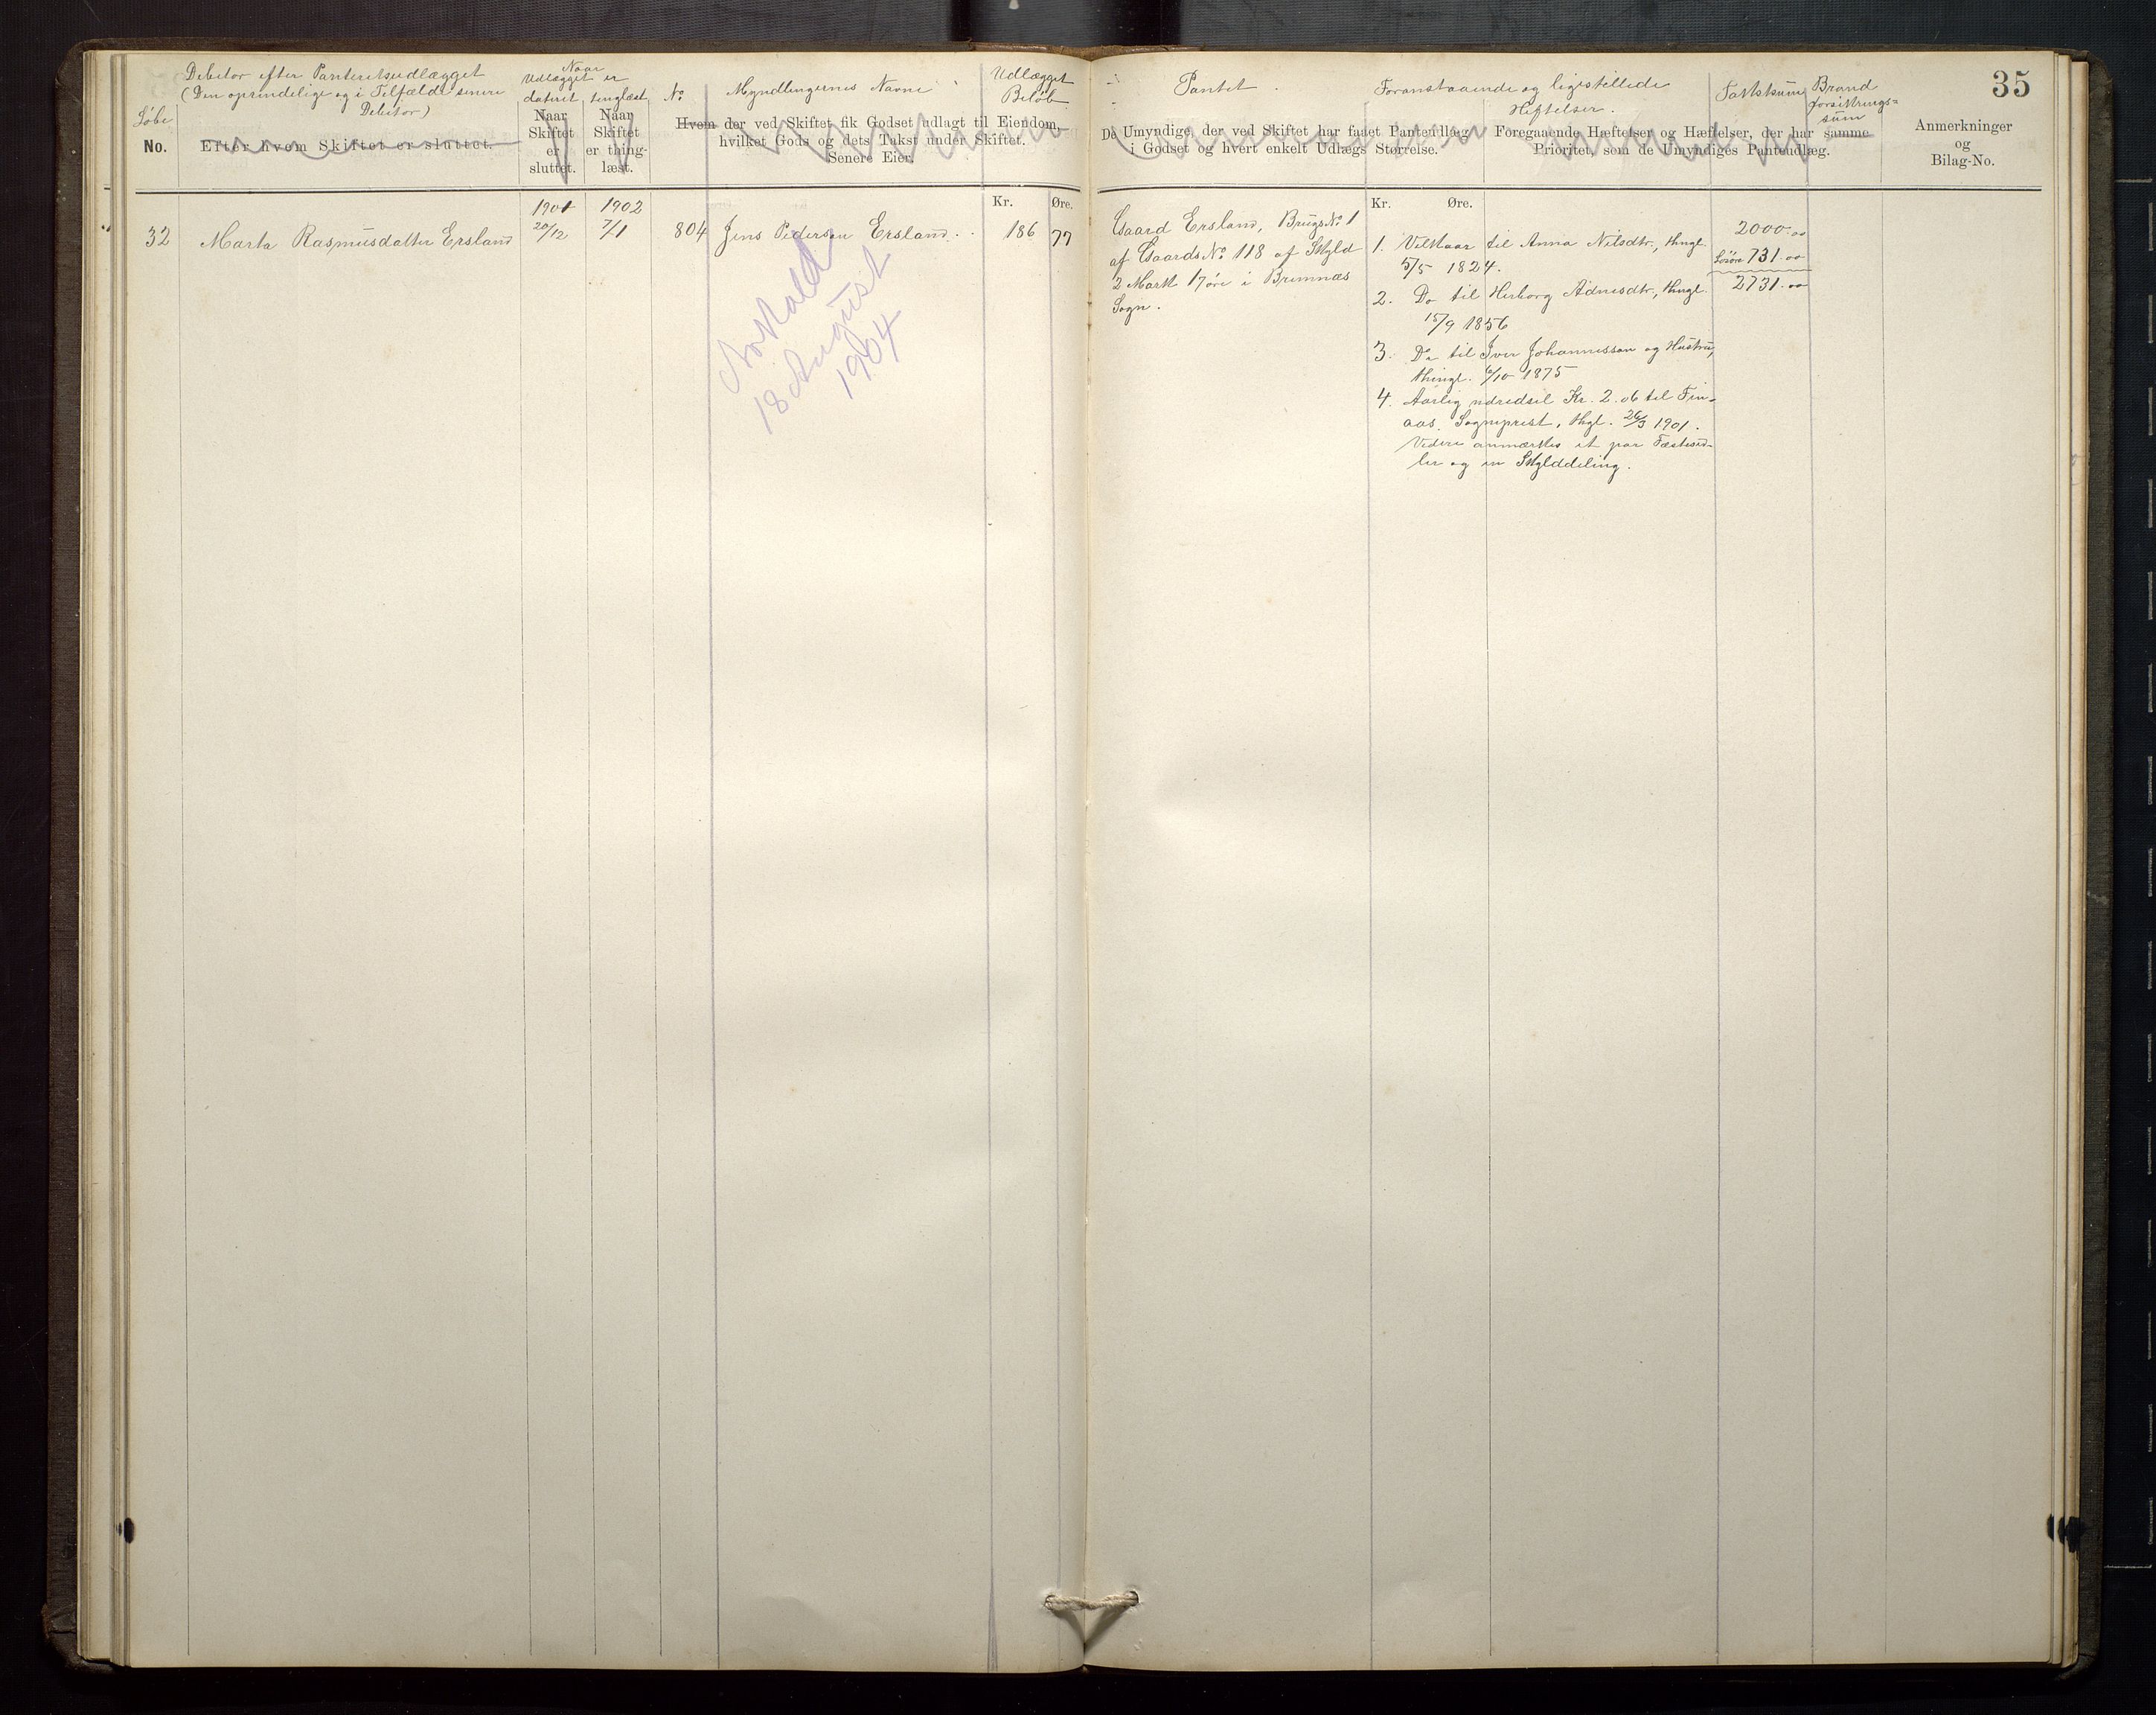 35
Debitor efter Panteretsudlægget
(Den oprindelige og i Tilfælde senere
Debitor)
Løbe
No.
Efter hvem Skiftet er sluttet.
Naar
Udlægget er
dateret tinglæst
Naar
Skiftet
er
sluttet.
Naar
Skiftet
er thing-
læst.
No
Myndlingernes Navne
Udlægget
Beløb
Hvem der ved Skiftet fik Godset udlagt til Eiendom,
hvilket Gods og dets Takst under Skiftet.
Senere Eier.
Kr. Øre.
Pantet.
De Umyndige, der ved Skiftet har faaet Panteudlæg
i Godset og hvert enkelt Udlægs Størrelse.
Kr. Øre.
Foranstaaende og ligestillede
Heftelser.
Foregaaende Hæftelser og Hæftelser, der har samme
Prioritet, som de Umyndiges Panteudlæg.
Takstsum
Brand
forsikrings-
sum
Anmerkninger
og
Bilag-No.
1901 1902
32 Marta Rasmusdatter Ersland 20/12 7/1 804 Jens Pederson Ersland. 186 77
18 August
1904
Gaard Ersland, Brugs No 1
af Gaards No 118 af Skyld
2 Mark 17 øre i Bremnæs
Sogn.
1. Vilkaar til Anna Nilsdtr., thingl.
5/5 1824.
2. Do til Herborg Adnesdtr., thingl.
15/9 1856
3. Do til Iver Johannesson og Hustru,
thingl. 6/10 1875
4. Aarlig udredsel Kr. 2.06 til Fin-
aas Sogneprest, thgl. 26/3 1901.
Videre anmærkes et par Fæstesed-
ler og en Skylddeling.
2000.00
Løsøre 731.00
2731.00